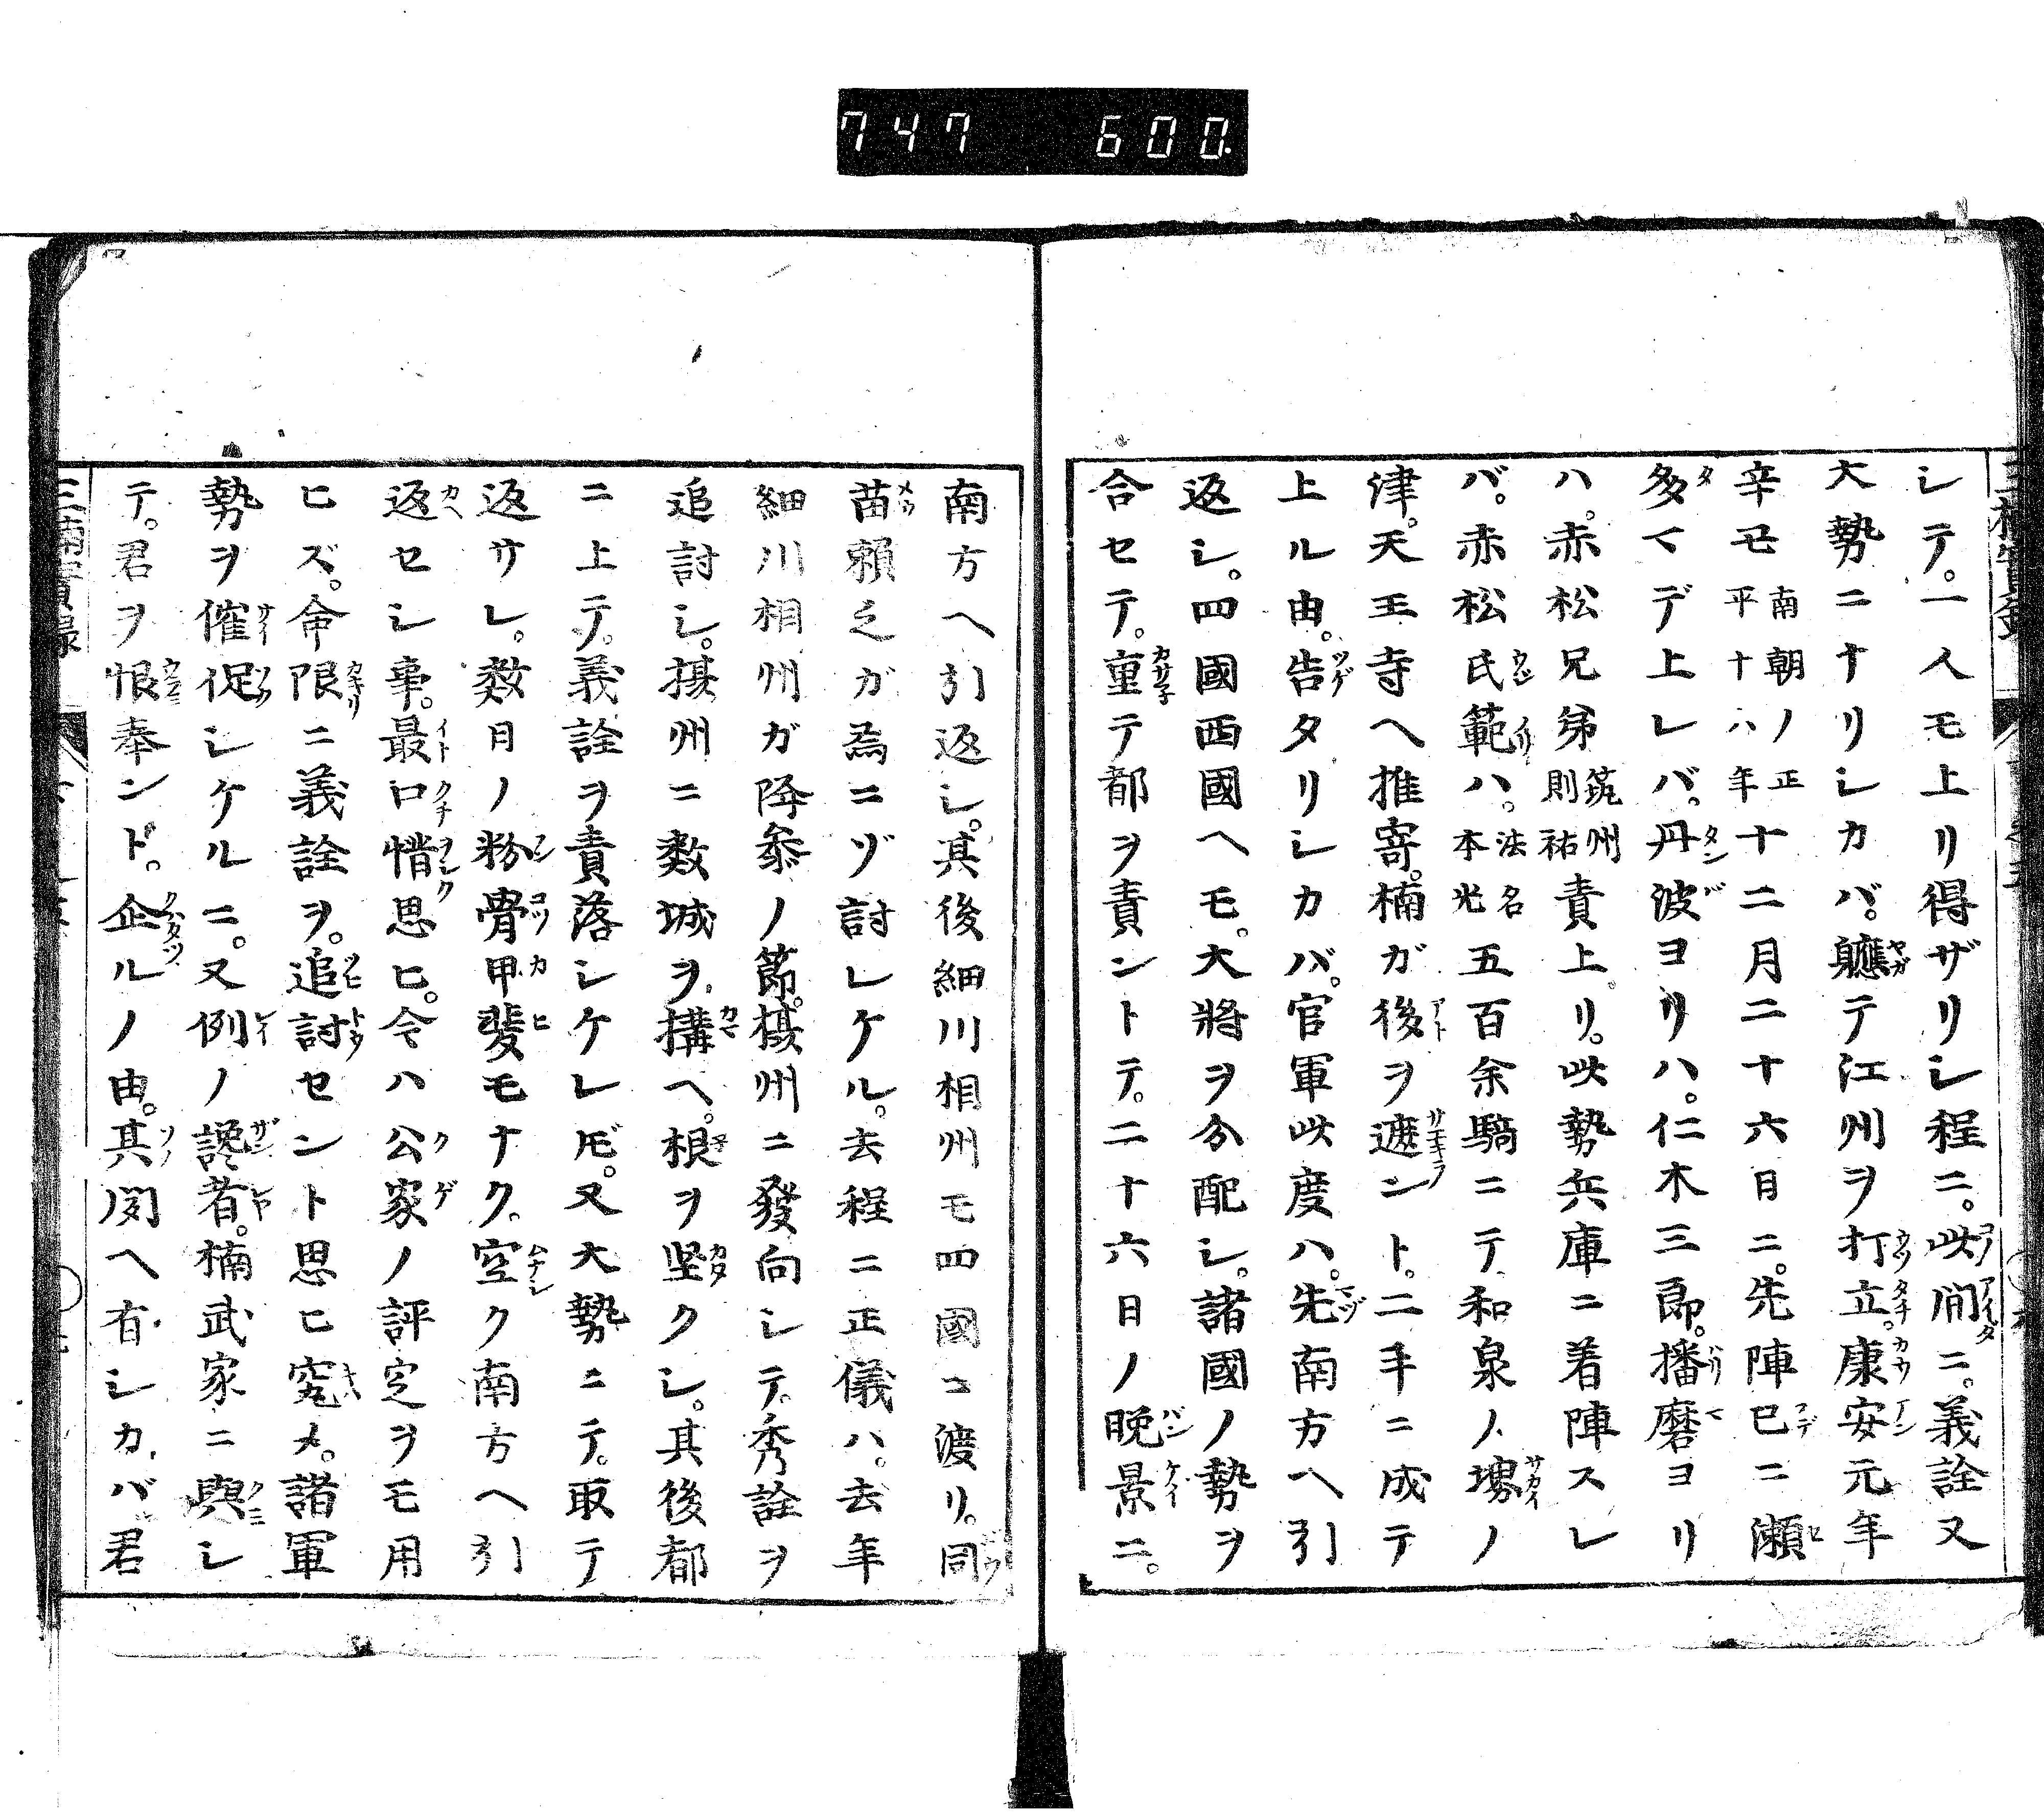 747 600.
シテ。一人モ上リ得ザリシ程ニ。此間ニ。義詮又
大勢ニナリシカバ。軈テ江州ヲ打立。康安元年
辛丑南朝ノ正平十八年十二月二十六日ニ。先陣已ニ瀬
多マデ上レバ。丹波ヨリハ。仁木三郎。播磨ヨリ
ハ。赤松兄弟筑州則祐責上リ。此勢兵庫ニ着陣スレ
バ。赤松氏範ハ。法名本光五百余騎ニテ和泉ノ堺ノ
津。天王寺ヘ推寄。楠ガ後ヲ遮ント。二手ニ成テ
上ル由。告タリシカバ。官軍此度ハ。先南方ヘ引
返シ。四國西國ヘモ。大將ヲ分配シ。諸國ノ勢ヲ
合セテ。重テ都ヲ責ントテ。二十六日ノ晩景ニ。
南方ヘ引返シ。其後細川相州モ四國ニ渡リ。同
苗頼之ガ爲ニゾ討レケル。去程ニ正儀ハ。去年
細川相州ガ降參ノ節。摂州ニ發向シテ。秀詮ヲ
追討シ。摂州ニ数城ヲ構ヘ。根ヲ堅クシ。其後都
ニ上テ。義詮ヲ責落シケレ𪜈。又大勢ニテ。取テ
返サレ。数日ノ粉骨甲斐モナク。空ク南方ヘ引
返セシ事。最口惜思ヒ。今ハ公家ノ評定ヲモ用
ヒズ。命限ニ義詮ヲ。追討セント思ヒ究メ。諸軍
勢ヲ催促シケルニ。又例ノ讒者。楠武家ニ與シ
テ。君ヲ恨奉ンド。企ルノ由。其聞ヘ有シカバ君